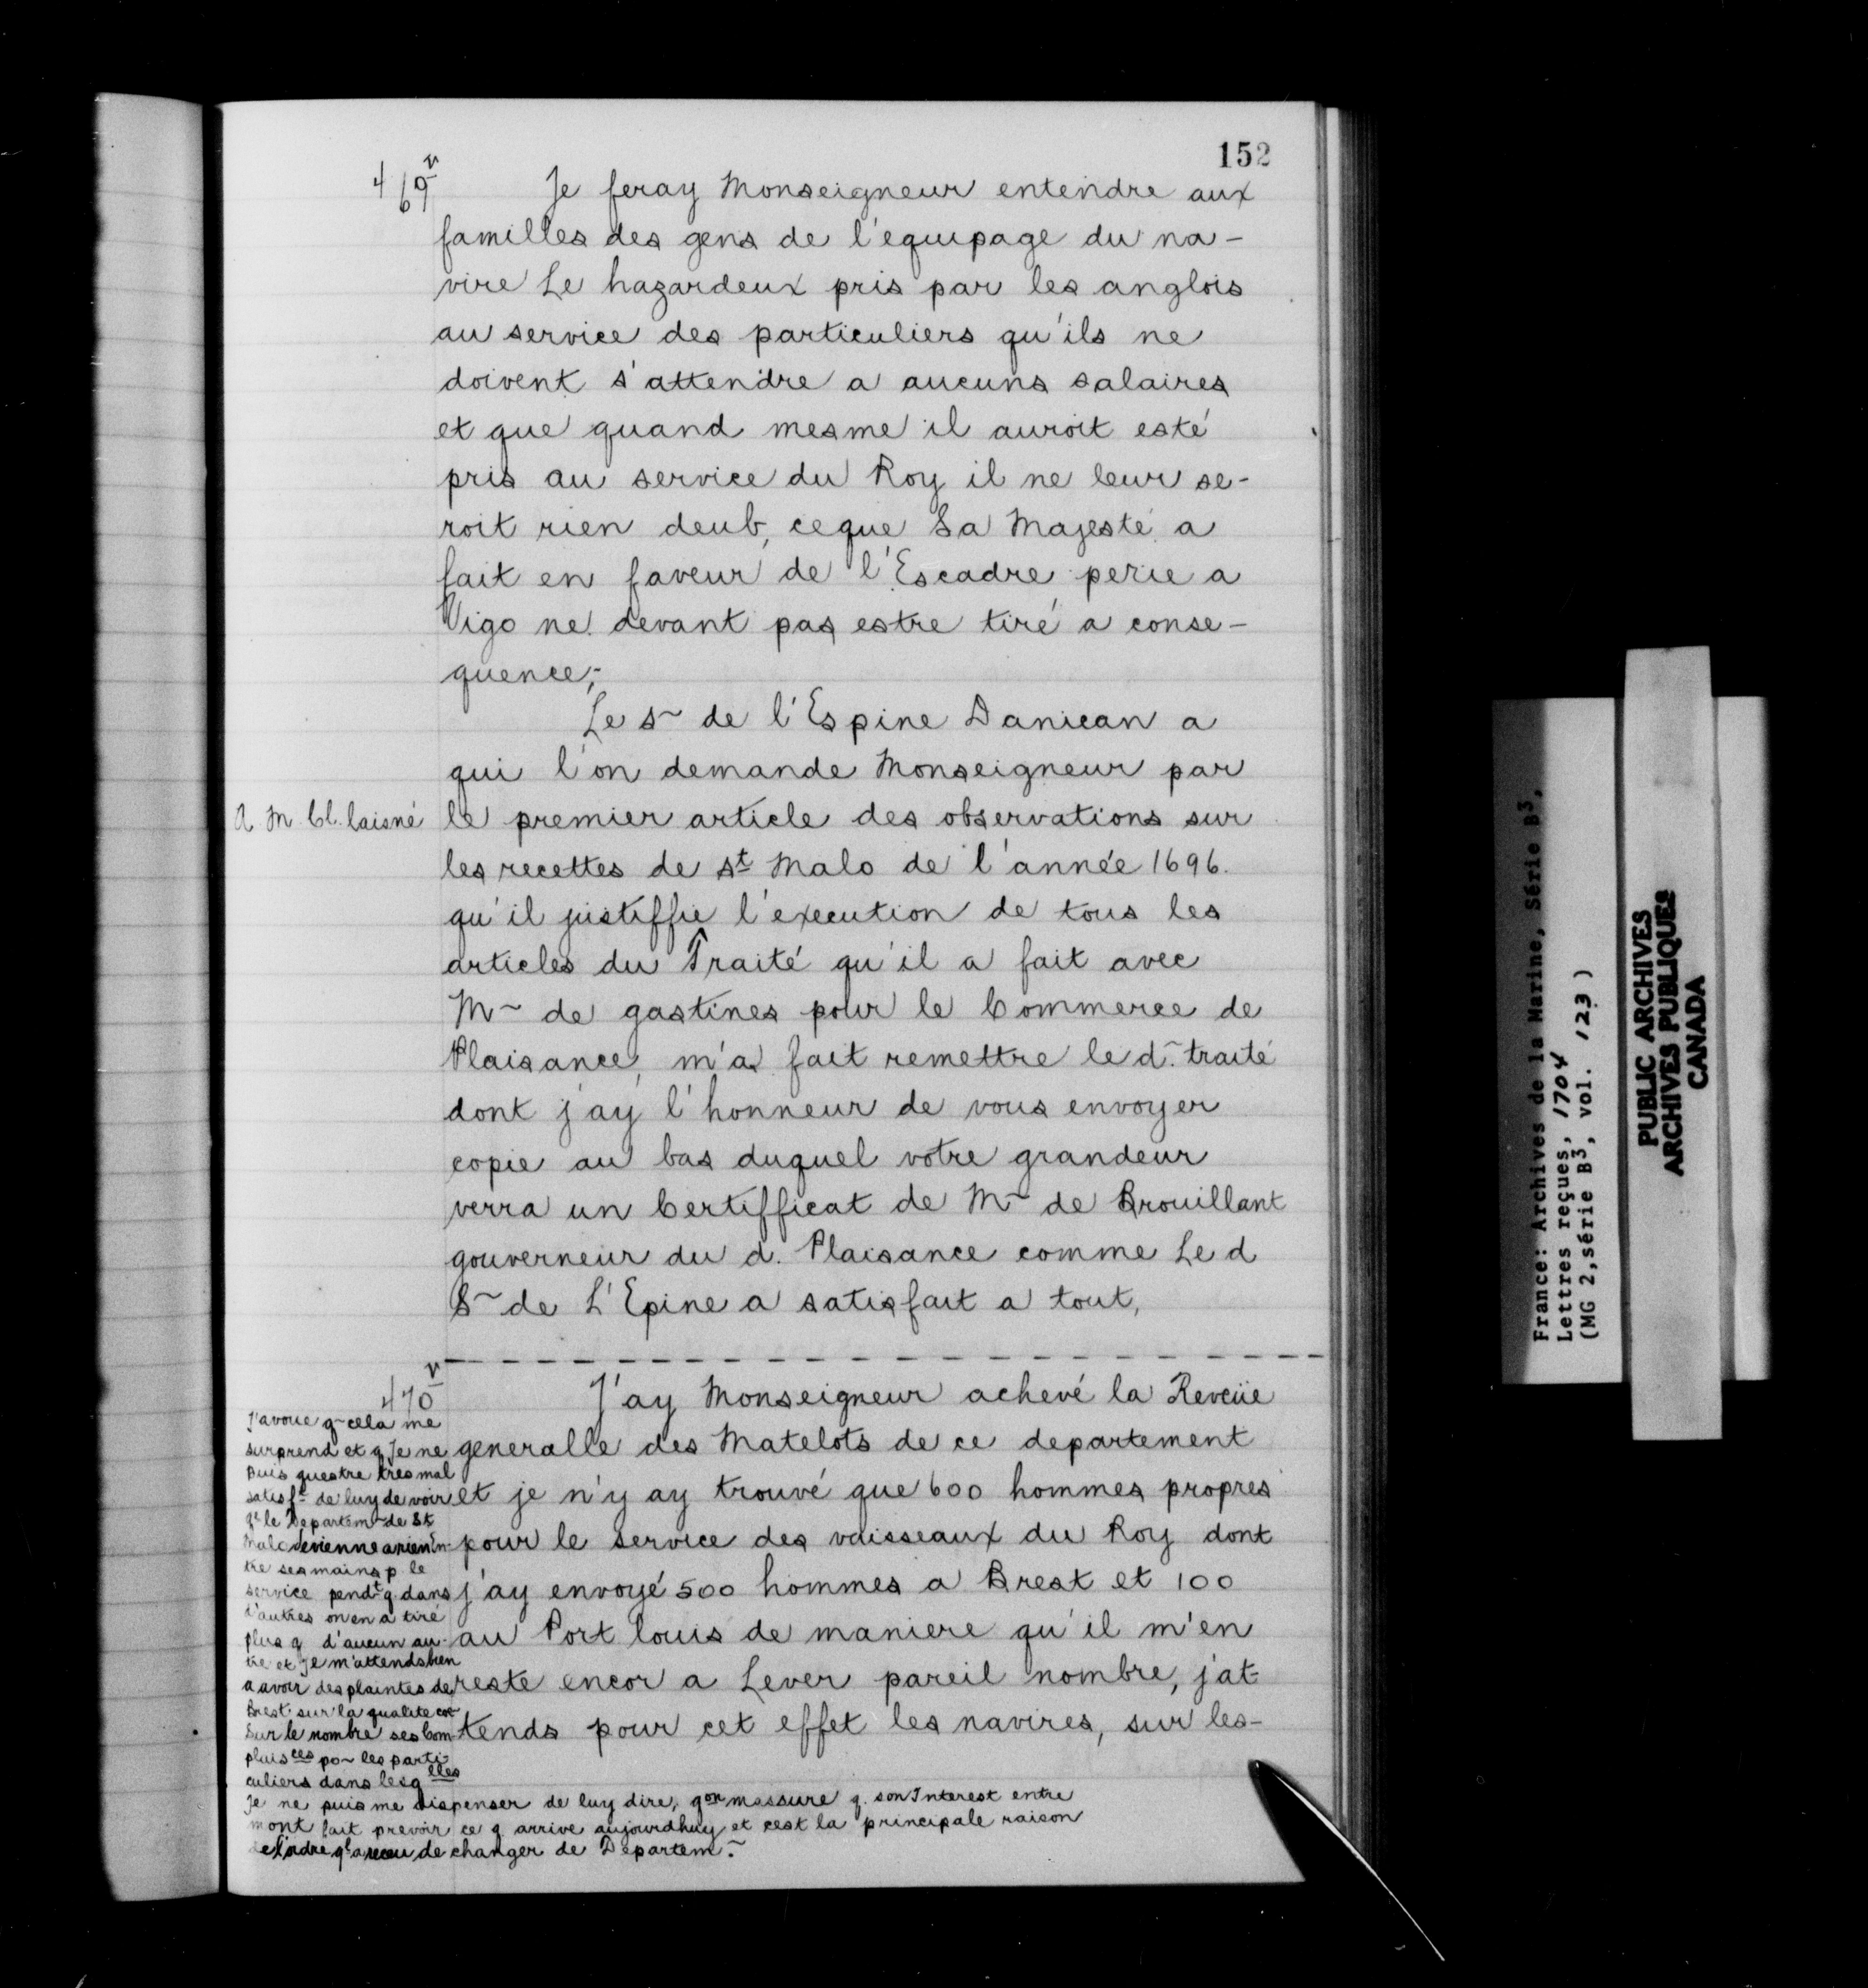 152
469v
Je feray Monseigneur entendre aux
familles des gens de l'equipage du na-
vire Le hazardeux pris par les anglois
au service des particuliers qu'ils ne
doivent s'attendre a aucuns salaires
et que quand mesme il auroit esté
pris au service du Roy il ne leur se-
roit rien deub, ceque Sa Majesté a
fait en faveur de l'Escadre perie a
Vigo ne devant pas estre tiré a conse-
quence;-
Le Sr de l'Espine Danican a
qui l'on demande Monseigneur par
A M Cl. laisné
le premier article des observations sur
les recettes de St Malo de l'année 1696.
qu'il justiffie l'execution de tous les
articles du Traité qu'il a fait avec
Mr de gastines pour le Commerce de
Plaisance, m'a fait remettre le d. traité
dont j'ay l'honneur de vous envoyer
copie au bas duquel votre grandeur
verra un Certifficat de Mr de Brouillant
gouverneur du d. Plaisance comme Le d
Sr de L'Epine a satisfait a tout,
470v
J'ay Monseigneur achevé la Reveüe
generalle des Matelots de ce departement
et je n'y ay trouvé que 600 hommes propres
pour le service des vaisseaux du Roy dont
j'ay envoyé 500 hommes a Brest et 100
au Port louis de maniere qu'il m'en
reste encor a Lever pareil nombre, j'at-
tends pour cet effet les navires, sur les-
J'avoue q cela me
surprend et q Je ne
Puis questre tres mal
satisft de luy de voir
qe le Departem de St
Malo devienne a rien En-
tre ses mains p. le
service pendt q. dans
d'autres on en a tiré
plus q d'aucun au-
tre et Je m'attends bien
a avoir des plaintes de
Brest sur la qualite et
Sur le nombre ses Com-
plaisces po~ les parti-
culiers dans lesqlles
Je ne puis me dispenser de luy dire, qon massure q. son Interest entre
mont fait prevoir ce q. arrive aujourdhuy et cest la principale raison
de l'ordre ql a receu de changer de Departem.~
France: Archives de la Marine, Série B3,
Lettres reçues, 1704
(MG 2,série B3, vol. 123)
PUBLIC ARCHIVES
ARCHIVES PUBLIQUES
CANADA